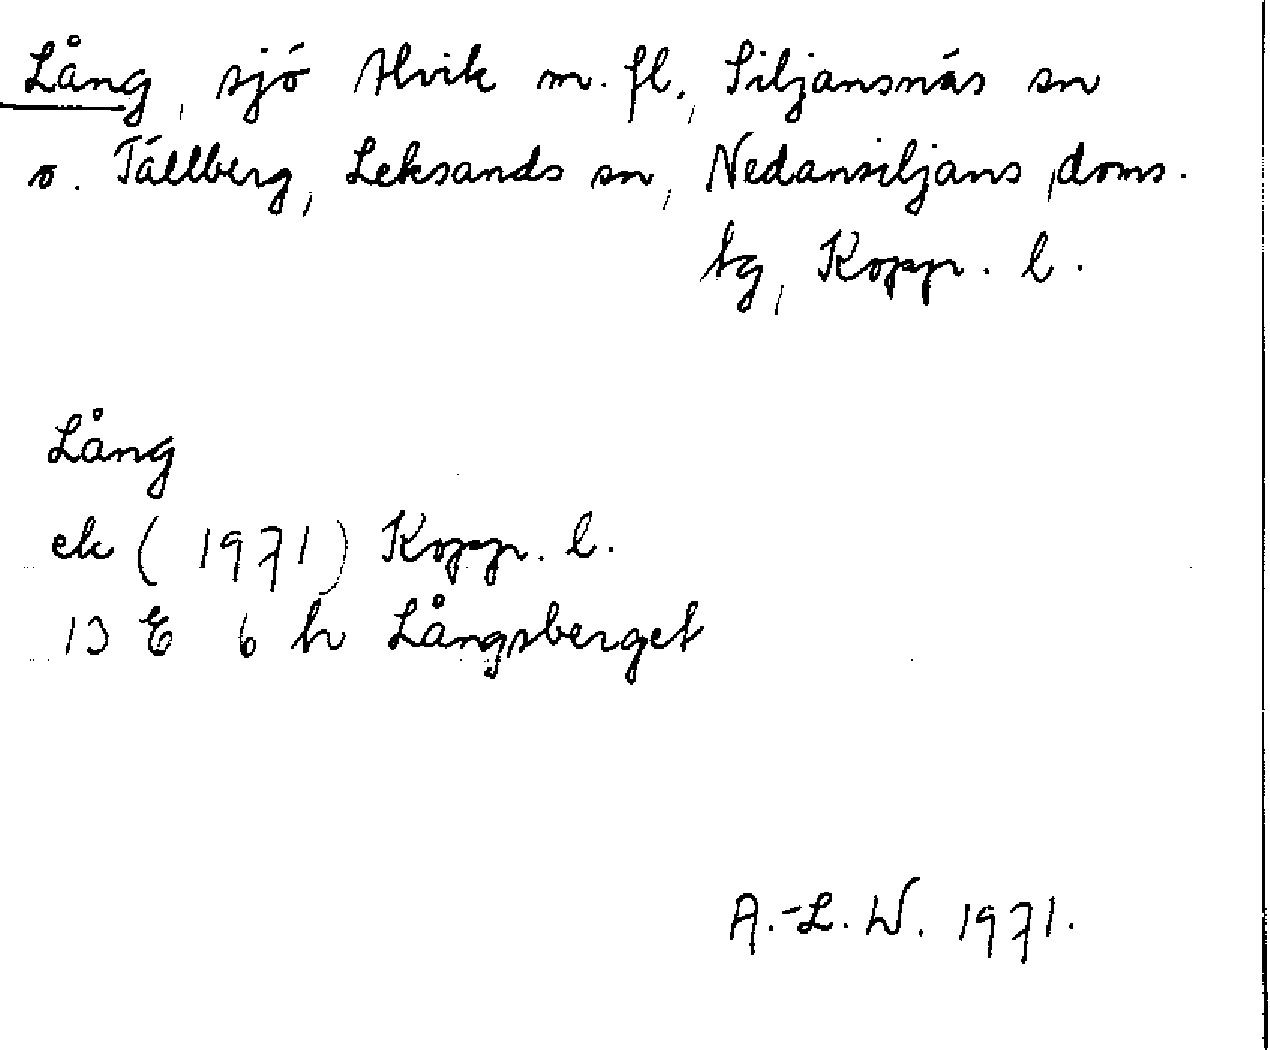 Lång, sjö Alvik m. fl., Siljansnäs sn
o. Tällberg, Leksands sn, Nedansiljans doms.
tg, Kopp. l.
Lång
ek (1971) Kopp. l.
13 E 6 h Långsberget
A.-L. W. 1971.